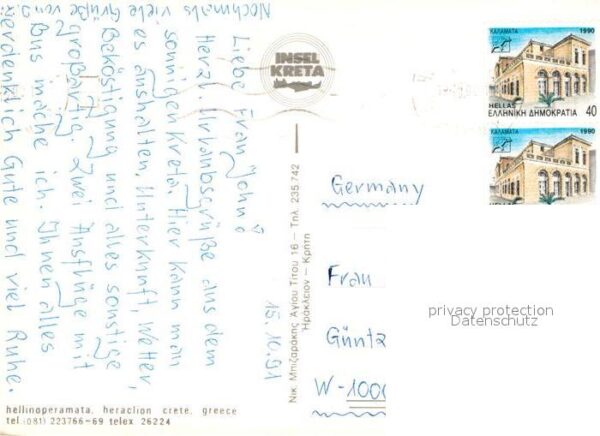 Nochmals viele Grüße von
15.10.91
Liebe Frau John!
Herzl. Urlaubsgrüße aus dem
sonnigen Kreta. Hier kann man
es aushalten, Unterkunft, Wetter,
Beköstigung und alles sonstige
großartig. Zwei Ausflüge mit
Bus mache ich. Ihnen alles
erdenklich Gute und viel Ruhe.
INSEL
KRETA
ΚΑΛΑΜΑΤΑ 1990
HELLAS
ΕΛΛΗΝΙΚΗ ΔΗΜΟΚΡΑΤΙΑ 40
ΚΑΛΑΜΑΤΑ 1990
HELLAS
Germany
Frau
Günt
W-1000
privacy protection
Datenschutz
Νικ. Μπιζαράκης Αγίου Τίτου 16 — Τηλ. 235.742
Ηράκλειον — Κρήτη
hellinoperamata, heraclion crete, greece
tel.(081) 223766-69 telex 26224